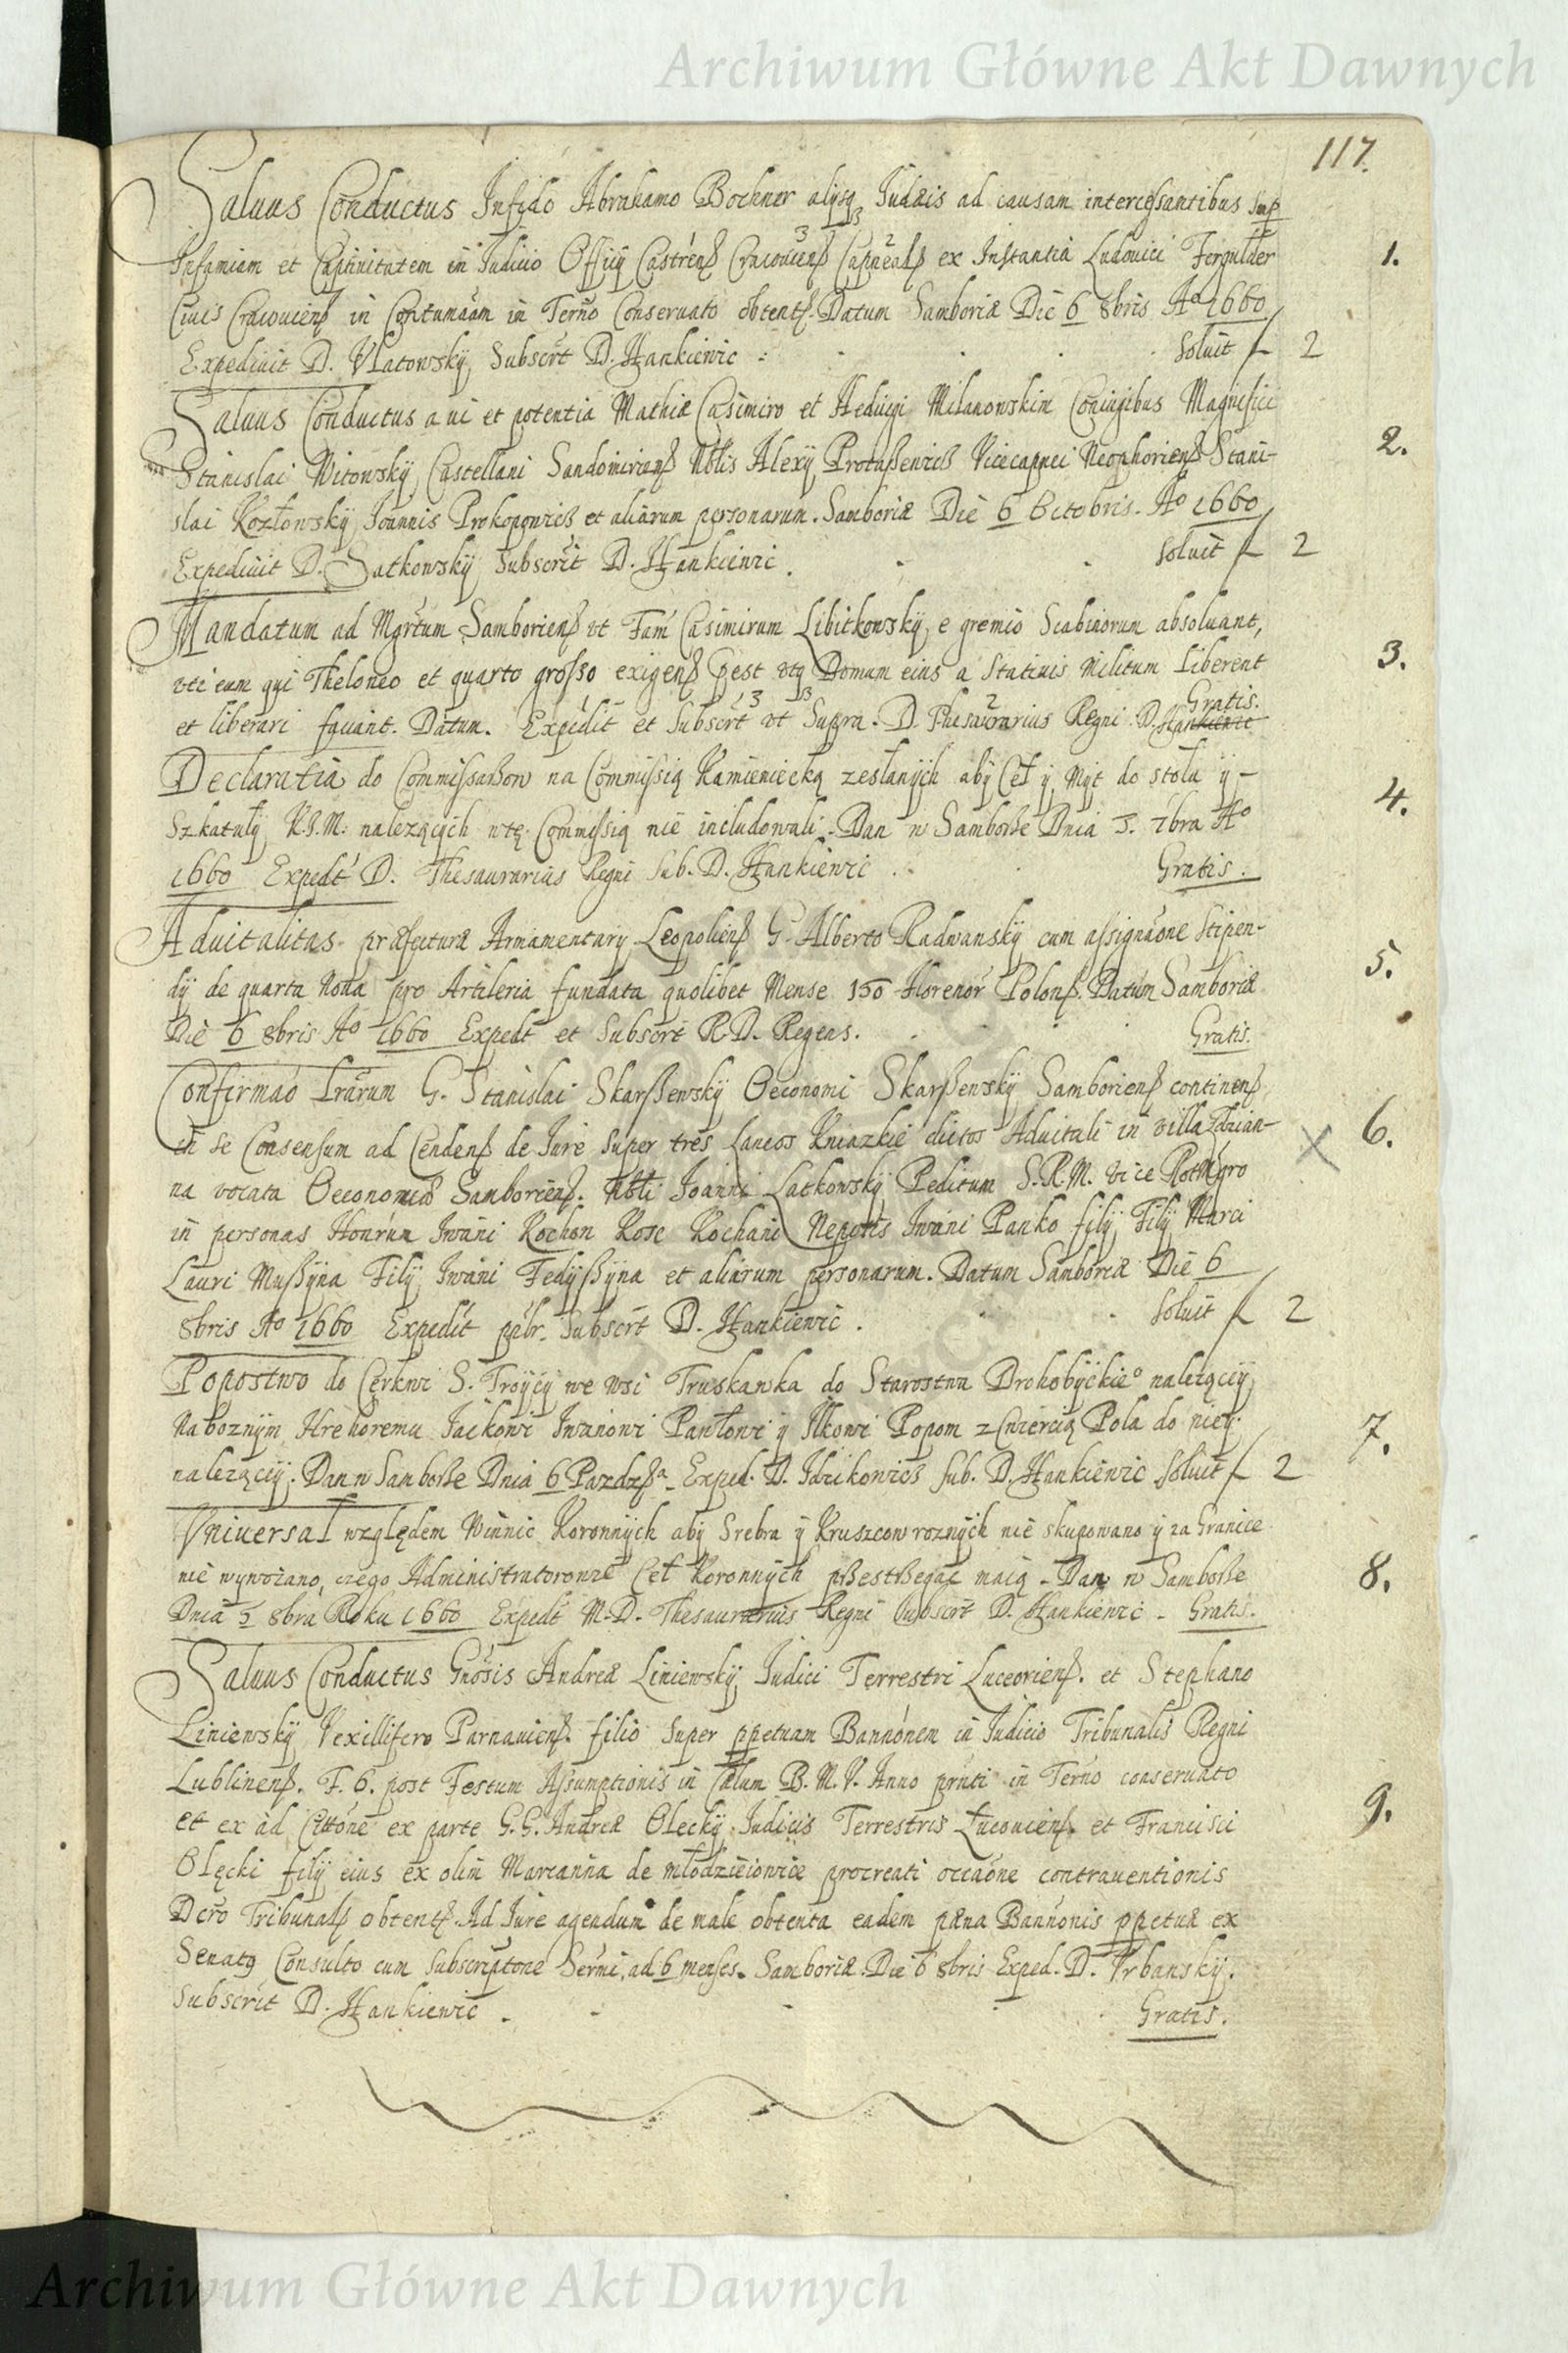 Archiwum Główne Akt Dawnych
117.
Saluus Conductus Infido Abrahamo Bochner alijsq Judæis ad causam interessantibus sup
Infamiam et Captiuitatem in Judicio Officij Castrenß Cracouienß Capnealß ex Instantia Ludouici Fergulder
1.
Ciuis Cracouienß in Contumaam in Termo Conseruato obtentß. Datum Samboriæ Die 6 8bris Aº 1660
Expediuit D. Vlatowskÿ Subscrt D. Hankiewic : Soluit f 2
Saluus Conductus a ui et potentia Mathiæ Casimiro et Heduigi Milanowskim Coniugibus Magnifici
Stanislai Witowskÿ Castellani Sandomirienß Nblis Alexÿ Protaßewicß Vicecapnei Neophorienß Stani-
2.
slai Kozłowskÿ Joannis Prokopowicß et aliarum personarum. Samboriæ Die 6 Octobris. Aº 1660
Expediuit D. Satkowskÿ Subscrit D. Hankiewic. soluit f 2
Mandatum ad Mgrtum Samborienß vt Fam Casimirum Libitkowskÿ e gremio Scabinorum absoluant,
vti eum qui Theloneo et quarto grosso exigenß pest vtq Domum eius a statiuis Militum Liberent
3.
et liberari faciant. Datum. Expedit et Subscrt vt Supra. D. Thesaurarius Regni D. Hankiewic Gratis.
Declaratia do Commissarzow na Commissią Kamieniecką zesłanÿch abÿ Ceł ÿ Mÿt do stołu ÿ-
Szkatułÿ K.J.M. nalezącÿch wtę Commissią nie includowali. Dan w Samborße Dnia 5. 7bra Aº
4.
1660 Expedt D. Thesaurarius Regni Sub. D. Hankiewic. Gratis.
Aduitalitas præfecturæ Armamentarÿ Leopolienß G. Alberto Radwanskÿ cum assignaone Stipen-
dÿ de quarta Noua pro Artileria fundata quolibet Mense 150 Florenor Polonß. Datum Samboriæ
5.
Die 6 8bris Aº 1660 Expedt et Subscrt R.D. Regens. Gratis.
Confirmao Lrarum G. Stanislai Skarßewskÿ Oeconomi Skarßewskÿ Samborienß continenß
in se Consensum ad Cendenß de Jure super tres Laneos Kniazkie dictos Aduitali in villa Zdzian-
6.
na vocata Oeconomiæ Samborienß. Nbli Joanni Latkowskÿ Peditum S.R.M. vice Rotmgro
in personas Honrum Iwani Kochon Kosc Kochani Nepotis Iwani Panko filÿ, Filÿ Marci
Lauri Mußÿna Filÿ Iwani Fedÿßÿna et aliarum personarum. Datum Samboriæ Die 6
8bris Aº 1660 Expedit Subscrt D. Hankiewic. soluit f 2
Popostwo do Cerkwi S. Troÿcÿ we wsi Truskawka do Starostwa Drohobÿckieº nalezącÿ
Naboznÿm Hrehoremu Jackowi Iwanowi Pawłowi ÿ Ilkowi Popom z Cwiercią Pola do nieÿ
7.
nalezącÿ. Dan w Samborße Dnia 6 Pazdzßa. Exped. D. Idzikowicß sub. D. Hankiewic soluit f 2
Vniuersał względem Winnic Koronnÿch abÿ Srebra ÿ Kruszcow roznÿch nie skupowano ÿ za Granice
nie wÿwożano, czego Administratorowie Ceł Koronnÿch pßestßegac maią. Dan w Samborße
8.
Dnia 5 8bra Roku 1660 Expedt M.D. Thesaurarius Regni Subscrt D. Hankiewic. Gratis.
Saluus Conductus Gnosis Andreæ Liniewskÿ Judici Terrestri Luceorienß. et Stephano
Liniewskÿ Vexillifero Parnauienß. filio super ppetuam Bannonem in Judicio Tribunalis Regni
Lublinenß. F. 6. post Festum Assumptionis in Cælum B.M.V. Anno prnti in Termo conseruato
et ex ad Cittone ex parte G.G. Andreæ Oleckÿ Judicis Terrestris Łucouienß. et Francisci
9.
Olęcki filÿ eius ex olim Marianna de młodzieiowice procreati occaone contrauentionis
Dcro Tribunalß obtentß. Ad Jure agendum de male obtenta eadem pæna Bannonis ppetuæ ex
Senatq Consulto cum Subscriptone Sermi, ad 6 menses. Samboriæ. Die 6 8bris Exped. D. Vrbanskÿ.
Subscrit D. Hankiewic. Gratis.
Archiwum Główne Akt Dawnych